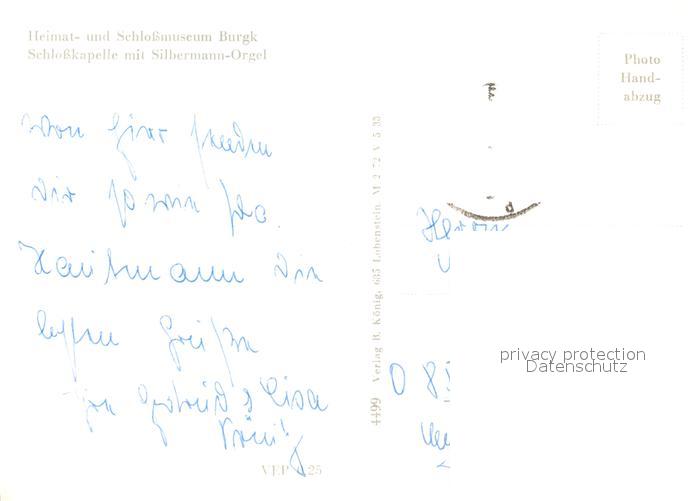 Heimat- und Schloßmuseum Burgk
Schloßkapelle mit Silbermann-Orgel
Photo
Hand-
abzug
Von hier senden
Dir so wie Frau
Hausmann die
besten Grüße
Lisa
König
VEP 25
4499 Verlag R. König, 685 Lobenstein. M 2 72 V 5 33
Herrn
O 85
privacy protection
Datenschutz